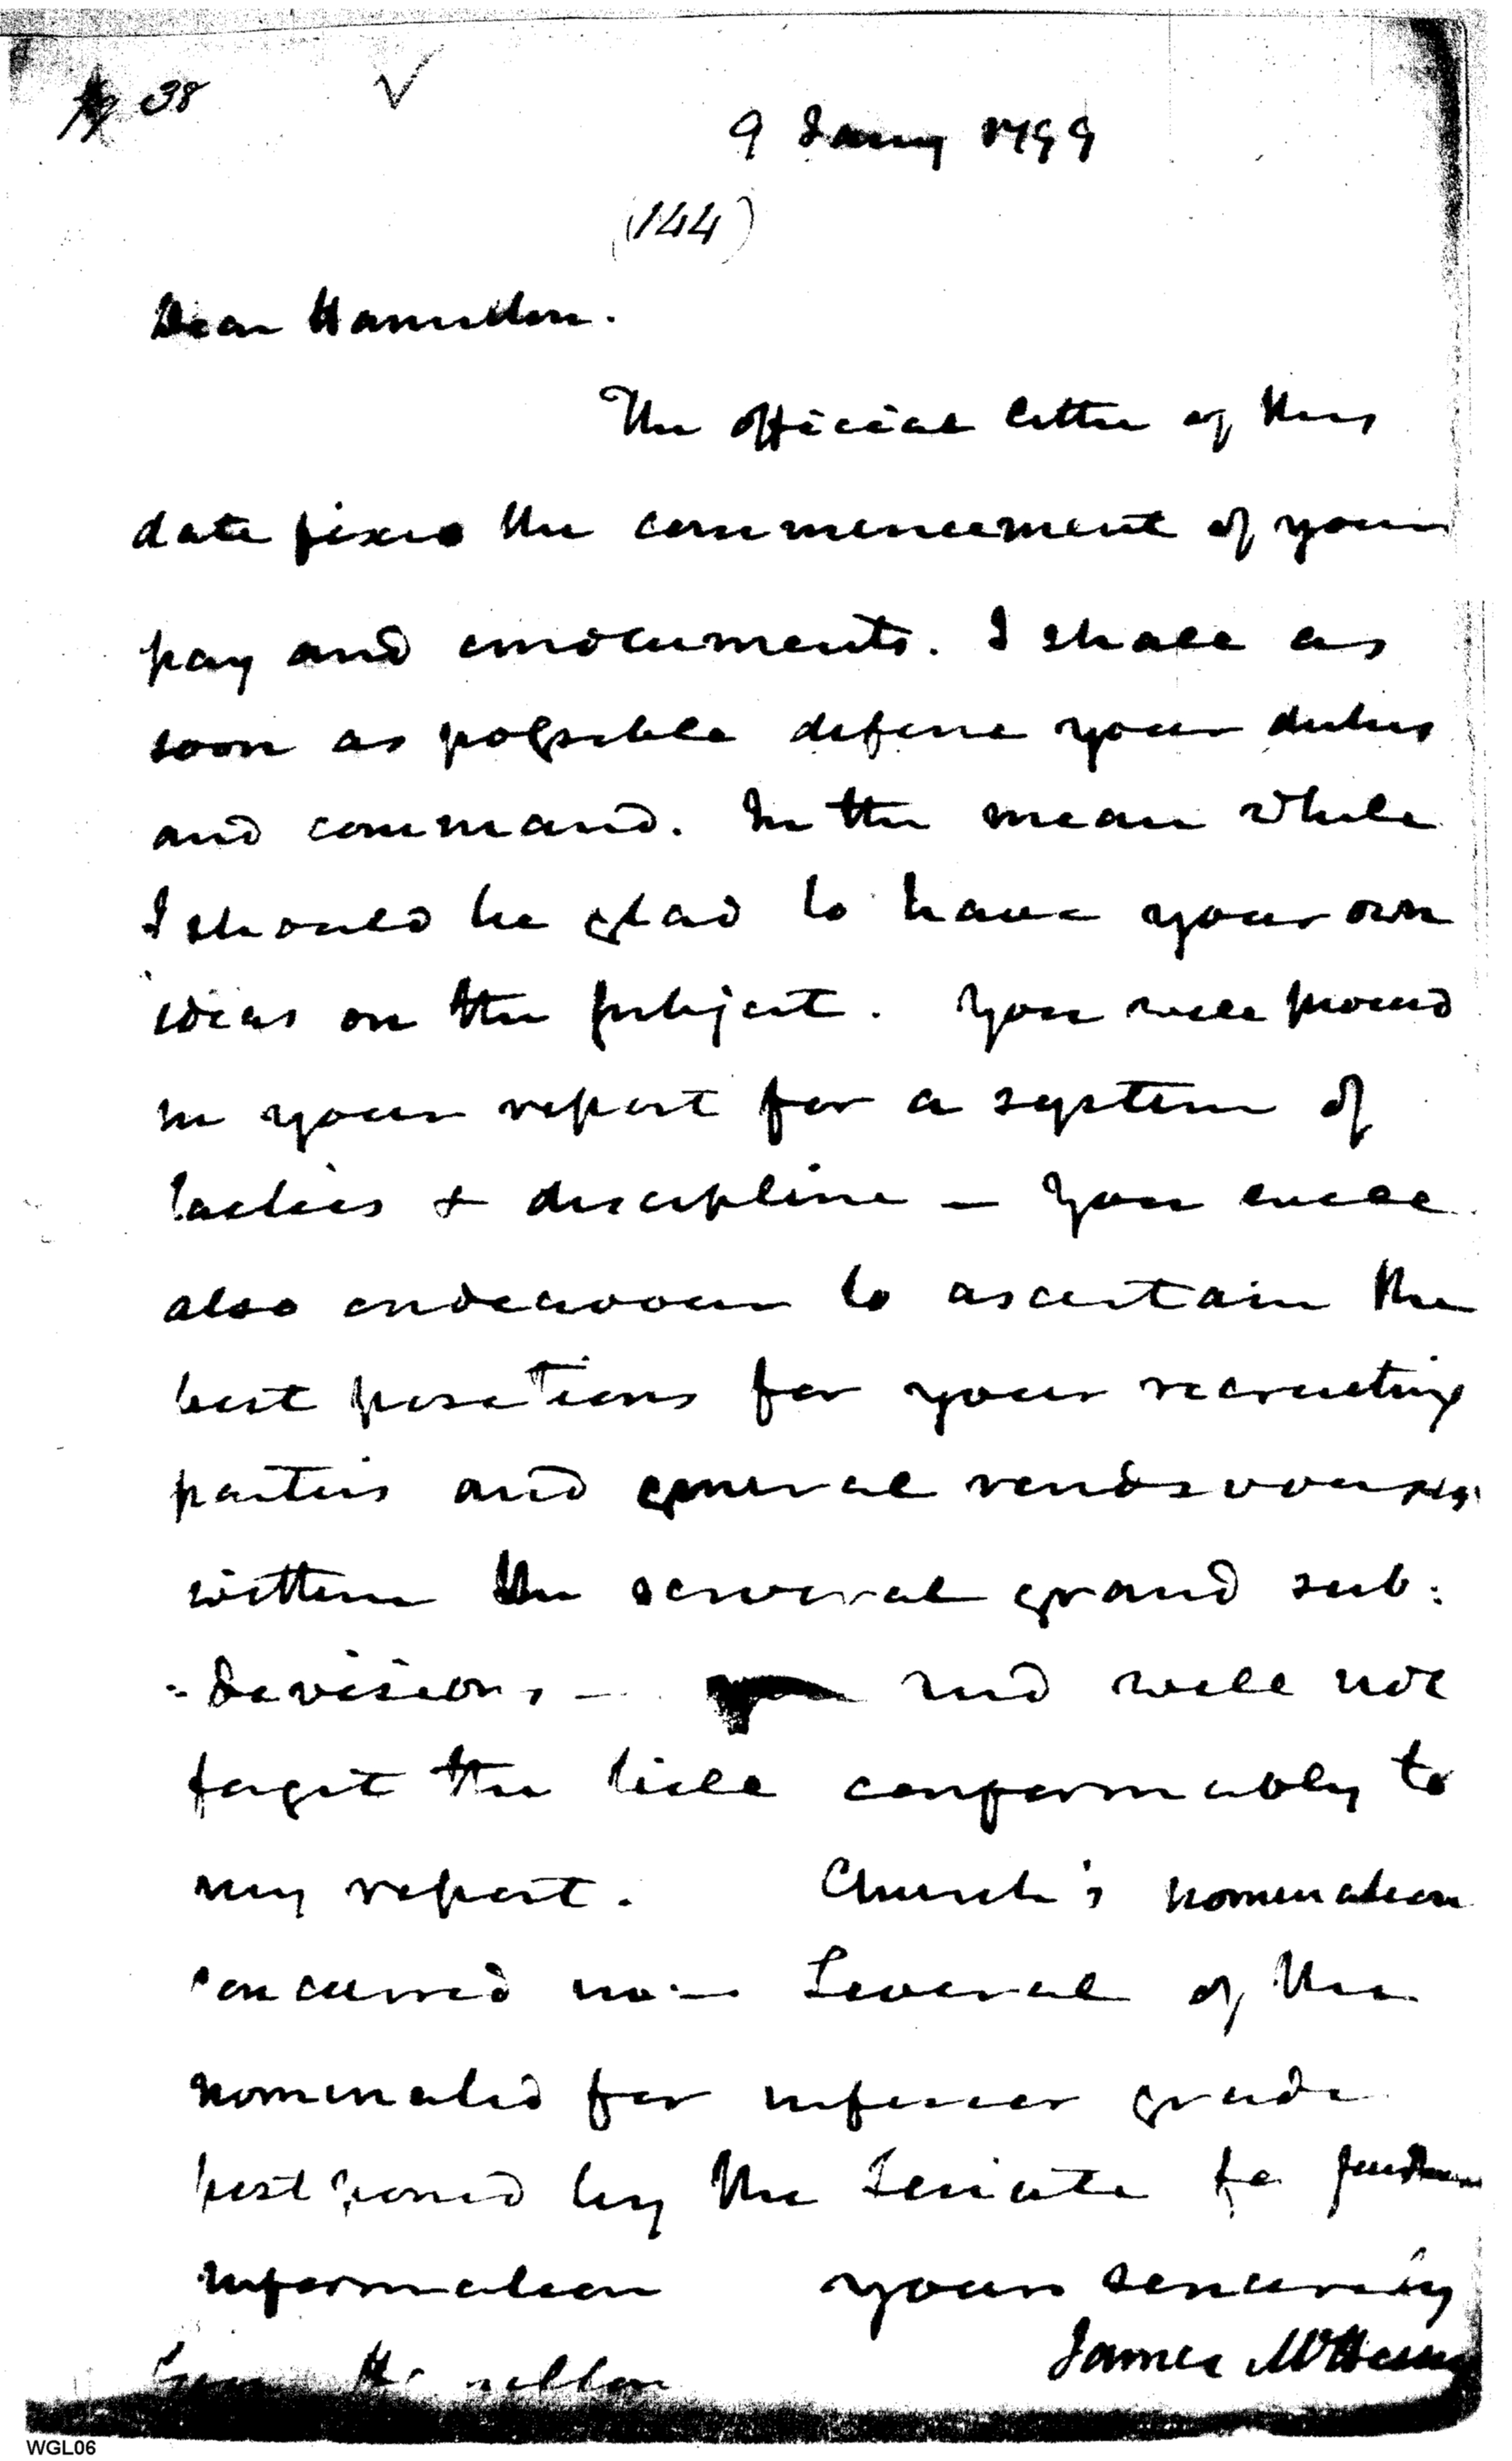 38
9 Jany 1799
(144)
Dear Hamilton.
The official letter of this
date fixes the commencement of your
pay and emoluments. I shall as
soon as possible define your duties
and command. In the mean while
I should be glad to have your own
ideas on the subject. You will proceed
in your report for a system of
tactics & discipline — You will
also endeavour to ascertain the
best positions for your recruiting
parties and general rendezvouses
within the several grand sub:
=divisions, — and will not
forget the bill conformably to
my report. Church's nomination
concurred in — Several of the
nominated for inferior grade
postponed by the Senate for further
information yours sincerely
James McHenry
Hamilton
WGL06